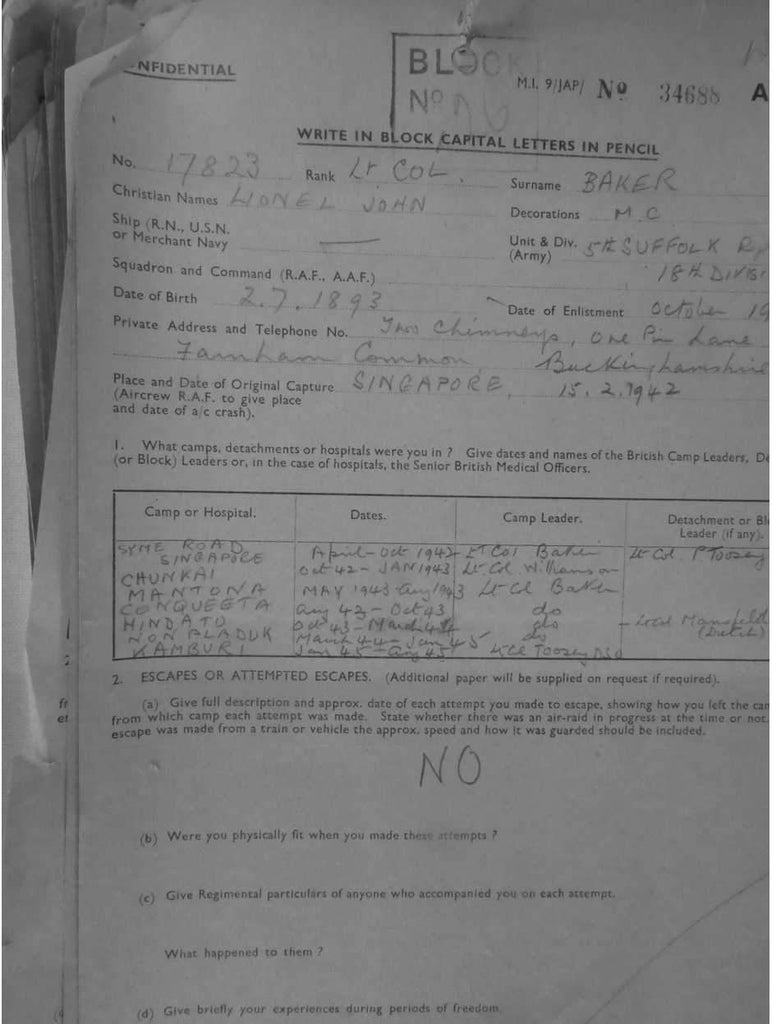 NFIDENTIAL
BLOCK
No
M.I. 9/JAP/ No 34688 A
WRITE IN BLOCK CAPITAL LETTERS IN PENCIL
No. 17823 Rank Lt COL. Surname BAKER
Christian Names LIONEL JOHN Decorations M.C
Ship (R.N., U.S.N.
or Merchant Navy
Unit & Div. 5th SUFFOLK R
(Army) 18th DIVISI
Squadron and Command (R.A.F., A.A.F.)
Date of Birth 2.7.1893 Date of Enlistment October 19
Private Address and Telephone No. Two Chimneys, One Pin Lane
Farnham Common, Buckinghamshire
Place and Date of Original Capture SINGAPORE, 15.2.1942
(Aircrew R.A.F. to give place
and date of a/c crash).
1. What camps, detachments or hospitals were you in ? Give dates and names of the British Camp Leaders, De
(or Block) Leaders or, in the case of hospitals, the Senior British Medical Officers.
Camp or Hospital. Dates. Camp Leader. Detachment or Bl
Leader (if any).
SYME ROAD
SINGAPORE April-Oct 1942 Lt Col Baker Lt Col. P Toosey
CHUNKAI Oct 42 - JAN 1943 Lt Col. Williamson
MANTONA MAY 1943 - Aug 1943 Lt Col Baker
CONQUEETA Aug 43 - Oct 43 do
HINDATO Oct 43 - March 44 do
NON PLADUK March 44 - Jan 45 do
(Dutch)
KAMBURI Jan 45 - Aug 45 Lt Col Toosey DSO
2. ESCAPES OR ATTEMPTED ESCAPES. (Additional paper will be supplied on request if required).
(a) Give full description and approx. date of each attempt you made to escape, showing how you left the cam
from which camp each attempt was made. State whether there was an air-raid in progress at the time or not.
escape was made from a train or vehicle the approx. speed and how it was guarded should be included.
NO
(b) Were you physically fit when you made these attempts ?
(c) Give Regimental particulars of anyone who accompanied you on each attempt.
What happened to them ?
(d) Give briefly your experiences during periods of freedom.